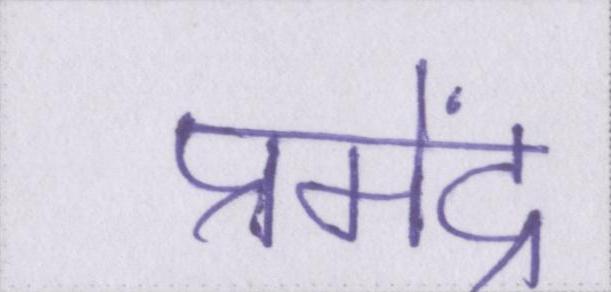 प्रमेंद्र